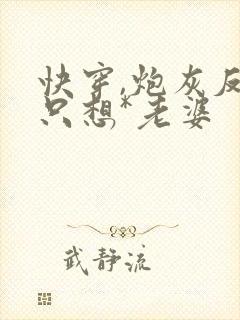 快穿,炮灰反
只想*老婆
武静流